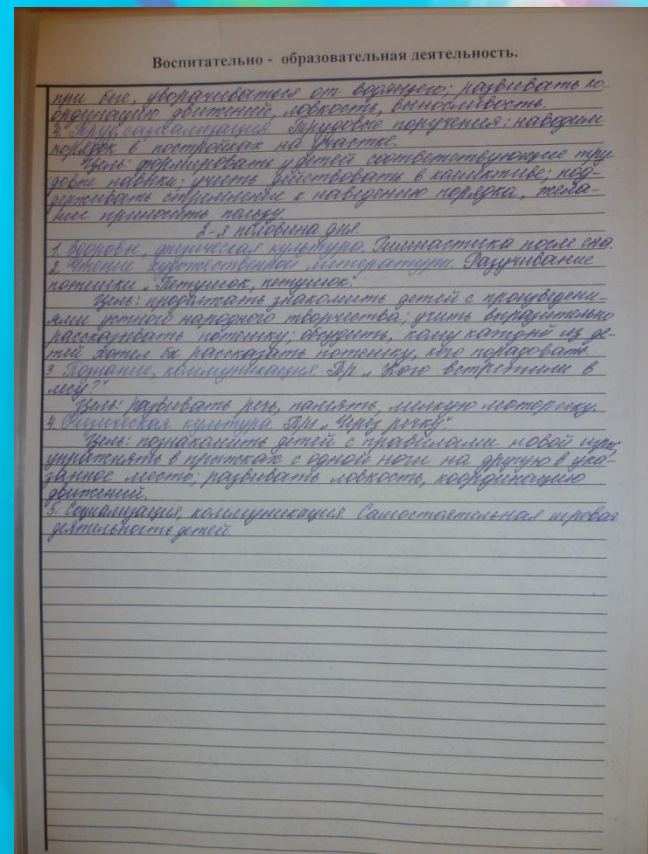 Воспитательно - образовательная деятельность.
при беге, уворачиваться от водящего; развивать ко-
ординацию движений, ловкость, выносливость.
4. Труд, социализация. Трудовые поручения: наводим
порядок в постройках на участке.
Цель: формировать у детей соответствующие тру-
довые навыки; учить действовать в коллективе; под-
держивать стремление к наведению порядка, жела-
ние приносить пользу.
2-я половина дня.
1. Здоровье, физическая культура. Гимнастика после сна.
2. Чтение художественной литературы. Разучивание
потешки „Петушок, петушок."
Цель: продолжать знакомить детей с произведени-
ями устного народного творчества; учить выразительно
рассказывать потешку; обсудить, кому каждый из де-
тей хотел бы рассказать потешку, кого порадовать.
3. Познание, коммуникация. „Кого встретили в
лесу?"
Цель: развивать речь, память, мелкую моторику.
4. Физическая культура. „Через речку"
Цель: познакомить детей с правилами новой игры,
упражнять в прыжках с одной ноги на другую в ука-
занное место; развивать ловкость, координацию
движений.
5. Социализация, коммуникация. Самостоятельная игровая
деятельность детей.